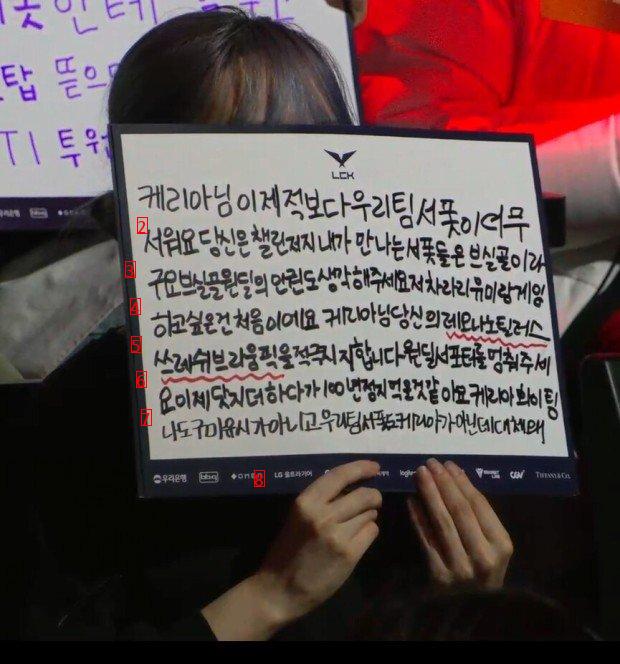 LCK
케리아님 이제 적보다 우리팀 서폿이 더 무
서워요 당신은 챌린저지 내가 만나는 서폿들은 브실골이라
구요 브실골 원딜의 인권도 생각해주세요 저 차라리 유미랑 게임
하고싶은건 처음이에요 케리아님 당신의 레오나 노틸러스
쓰레쉬 브라움 픽을 적극 지지합니다 원딜 서포터를 멈춰주세
요 이제 닷지 더하다가 100년정지먹을것같아요 케리아 화이팅
나도 구마유시가 아니고 우리팀 서폿도 케리아가 아닌데 대체 왜
우리은행 bbq LG 울트라기어 CGV TIFFANY & CO.
2
3
4
5
6
7
8
탑 뜯으
T1